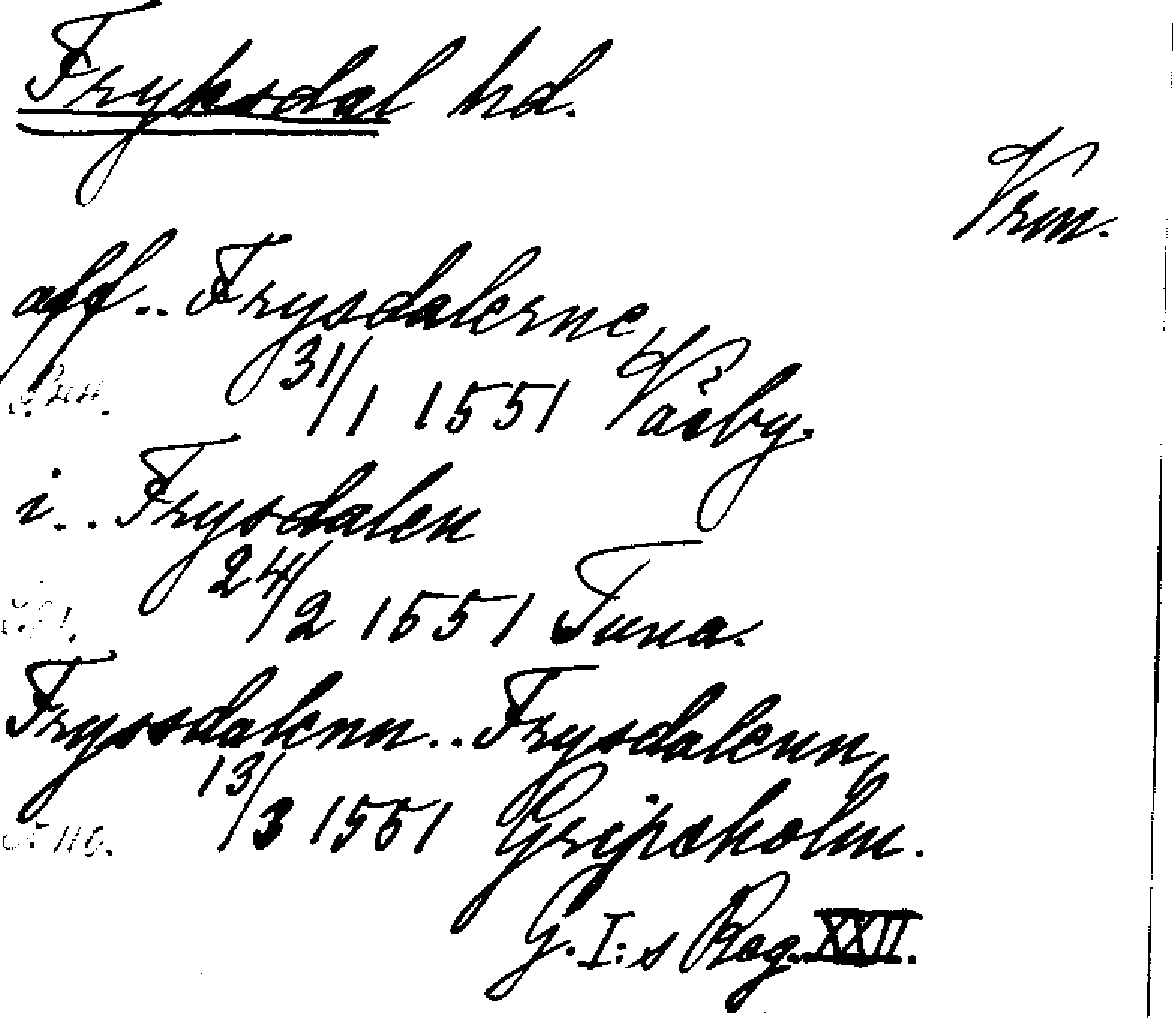 Fryksdal hd.
Vrm.
aff.. Frysdalerne
31/1 1551 Väsby.
i... Frysdalen
24/2 1551 Tuna.
Fryssdalenn.. Frysdalenn,
13/3 1551 Gripsholm.
G. I:s Reg. XXII.